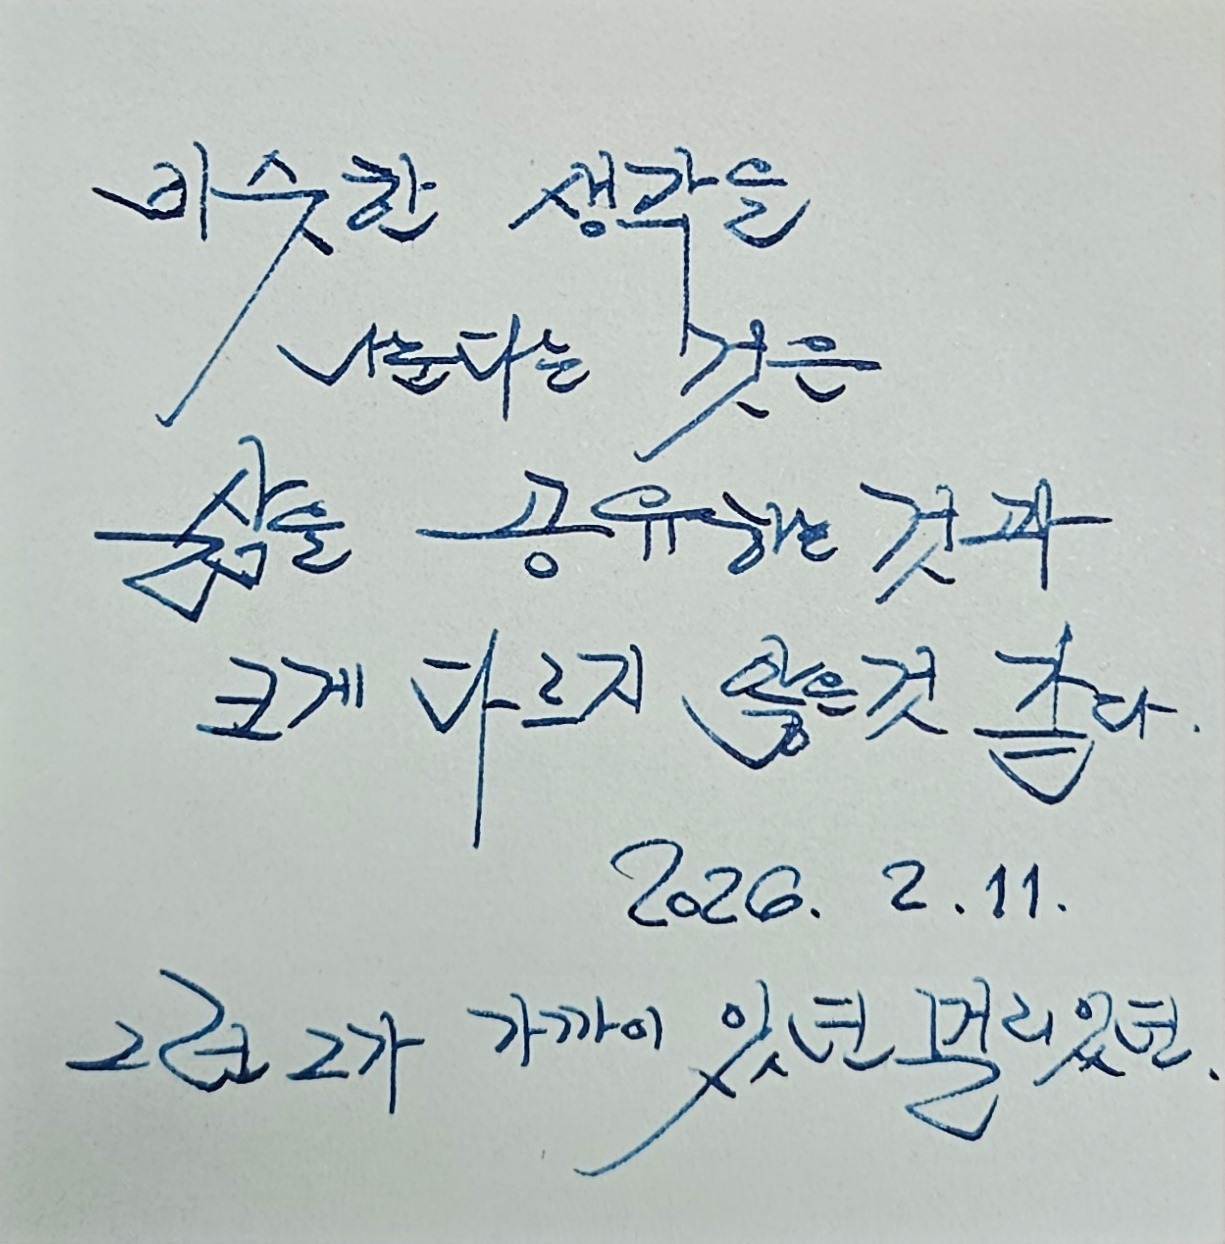 비슷한 생각을
나눈다는 것은
삶을 공유하는 것과
크게 다르지 않은것 같다.
2026. 2. 11.
그가 가까이 있던 멀리있던.